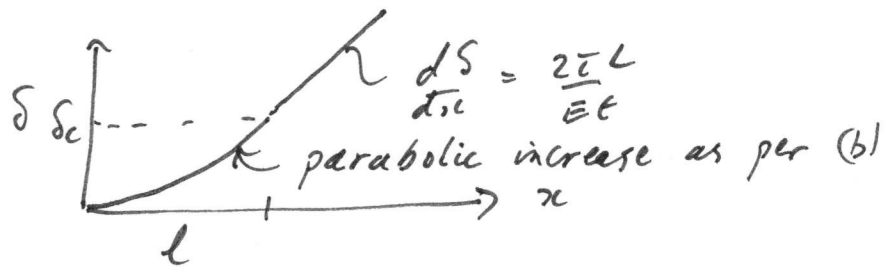 dδ/dx = 2τL/Et
δ δc
parabolic increase as per (b)
x
l